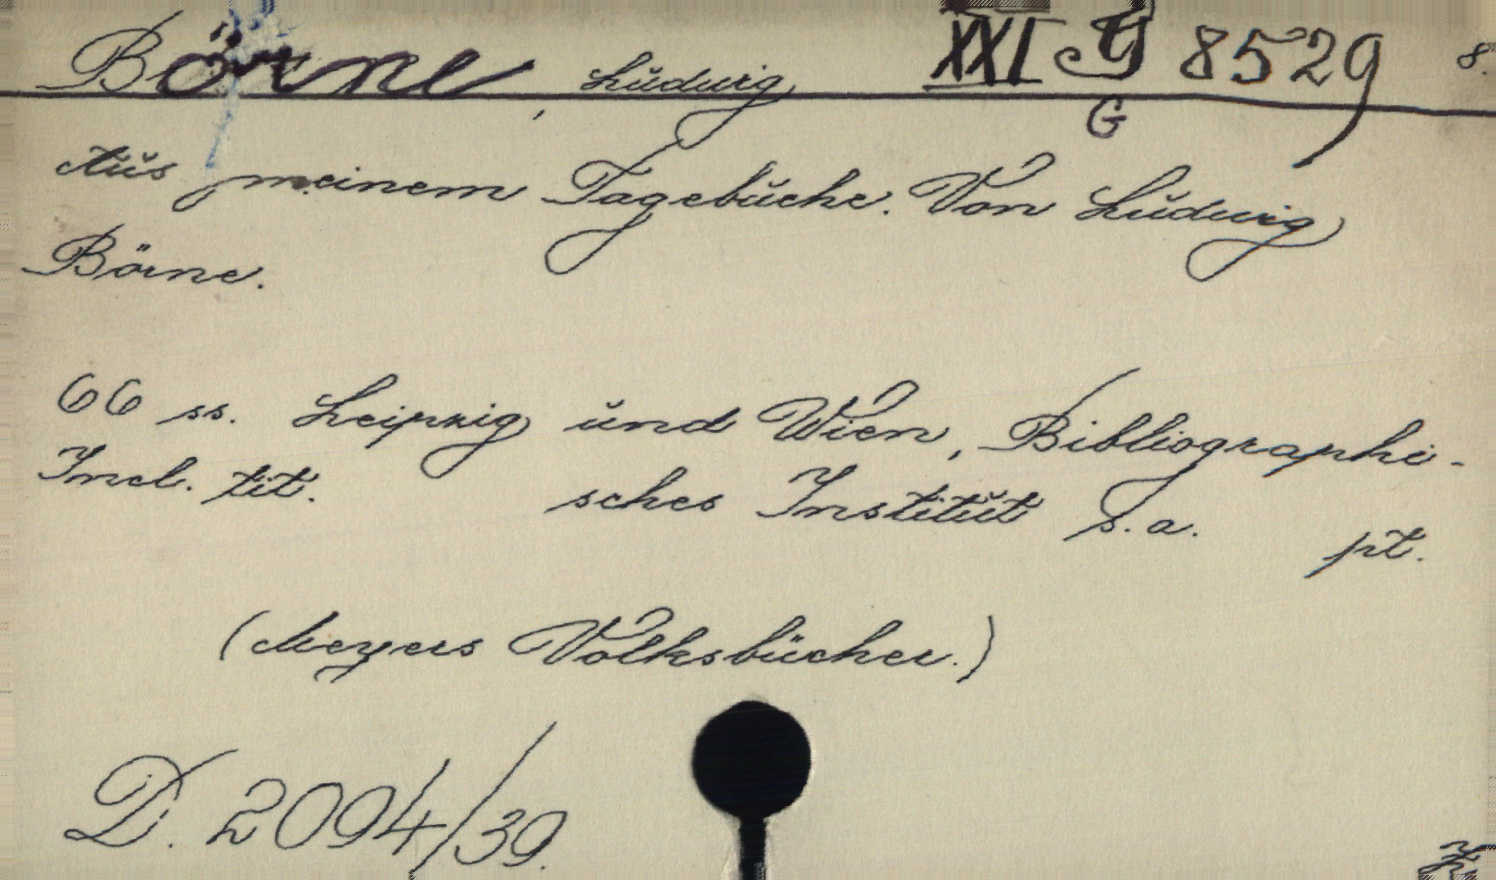 Börne, Ludwig XXI G 8529 8.
G
Aus meinem Tagebuche. Von Ludwig
Börne.
66 ss. Leipzig und Wien, Bibliographi-
Incl. tit. sches Institut s.a. pt.
(Meyers Volksbücher.)
D. 2094/39.